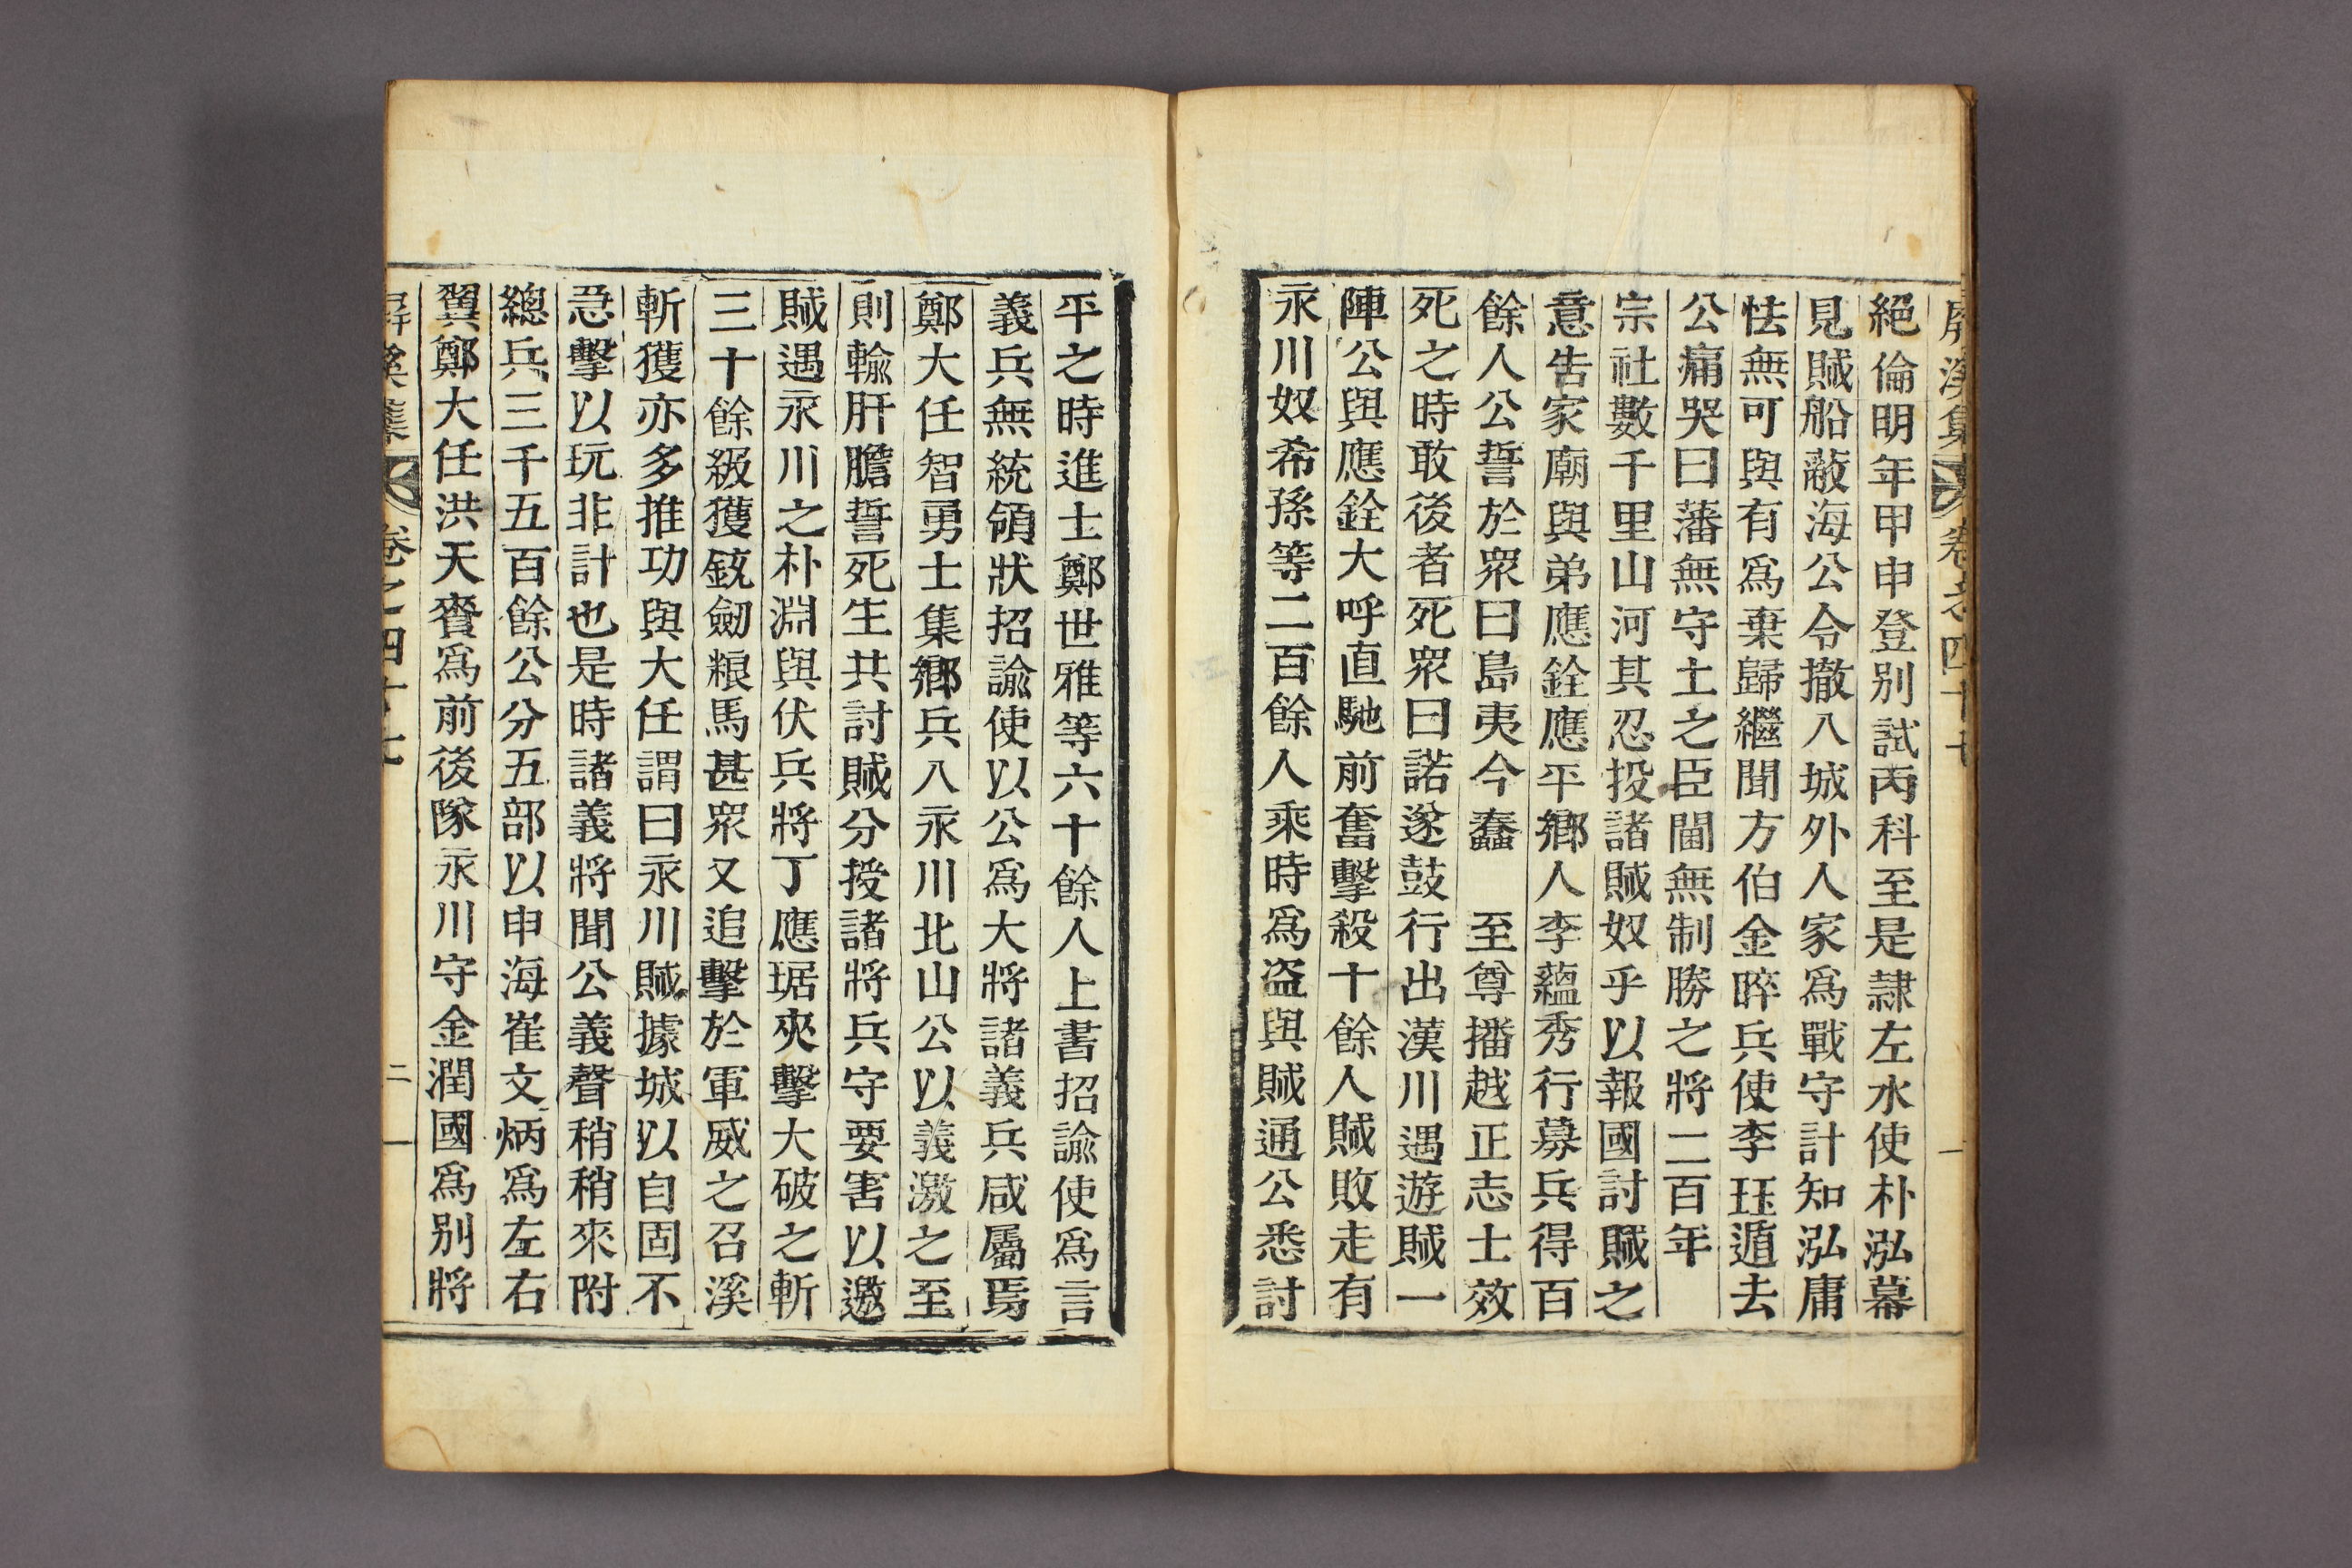 屏溪集 卷之四十七 一
絕倫明年甲申登別試丙科至是隷左水使朴泓幕
見賊船蔽海公令撤入城外人家爲戰守計知泓庸
怯無可與有爲棄歸繼聞方伯金睟兵使李珏遁去
公痛哭曰藩無守土之臣閫無制勝之將二百年
宗社數千里山河其忍投諸賊奴乎以報國討賊之
意告家廟與弟應銓應平鄕人李蘊秀行募兵得百
餘人公誓於衆曰島夷今蠢 至尊播越正志士效
死之時敢後者死衆曰諾遂鼓行出漢川遇遊賊一
陣公與應銓大呼直馳前奮擊殺十餘人賊敗走有
永川奴希孫等二百餘人乘時爲盜與賊通公悉討
平之時進士鄭世雅等六十餘人上書招諭使爲言
義兵無統領狀招諭使以公爲大將諸義兵咸屬焉
鄭大任智勇士集鄕兵入永川北山公以義激之至
則輸肝膽誓死生共討賊分授諸將兵守要害以邀
賊遇永川之朴淵與伏兵將丁應琚夾擊大破之斬
三十餘級獲銃劒粮馬甚衆又追擊於軍威之召溪
斬獲亦多推功與大任謂曰永川賊據城以自固不
急擊以玩非計也是時諸義將聞公義聲稍稍來附
總兵三千五百餘公分五部以申海崔文炳爲左右
翼鄭大任洪天賚爲前後隊永川守金潤國爲別將
屏溪集 卷之四十七 二